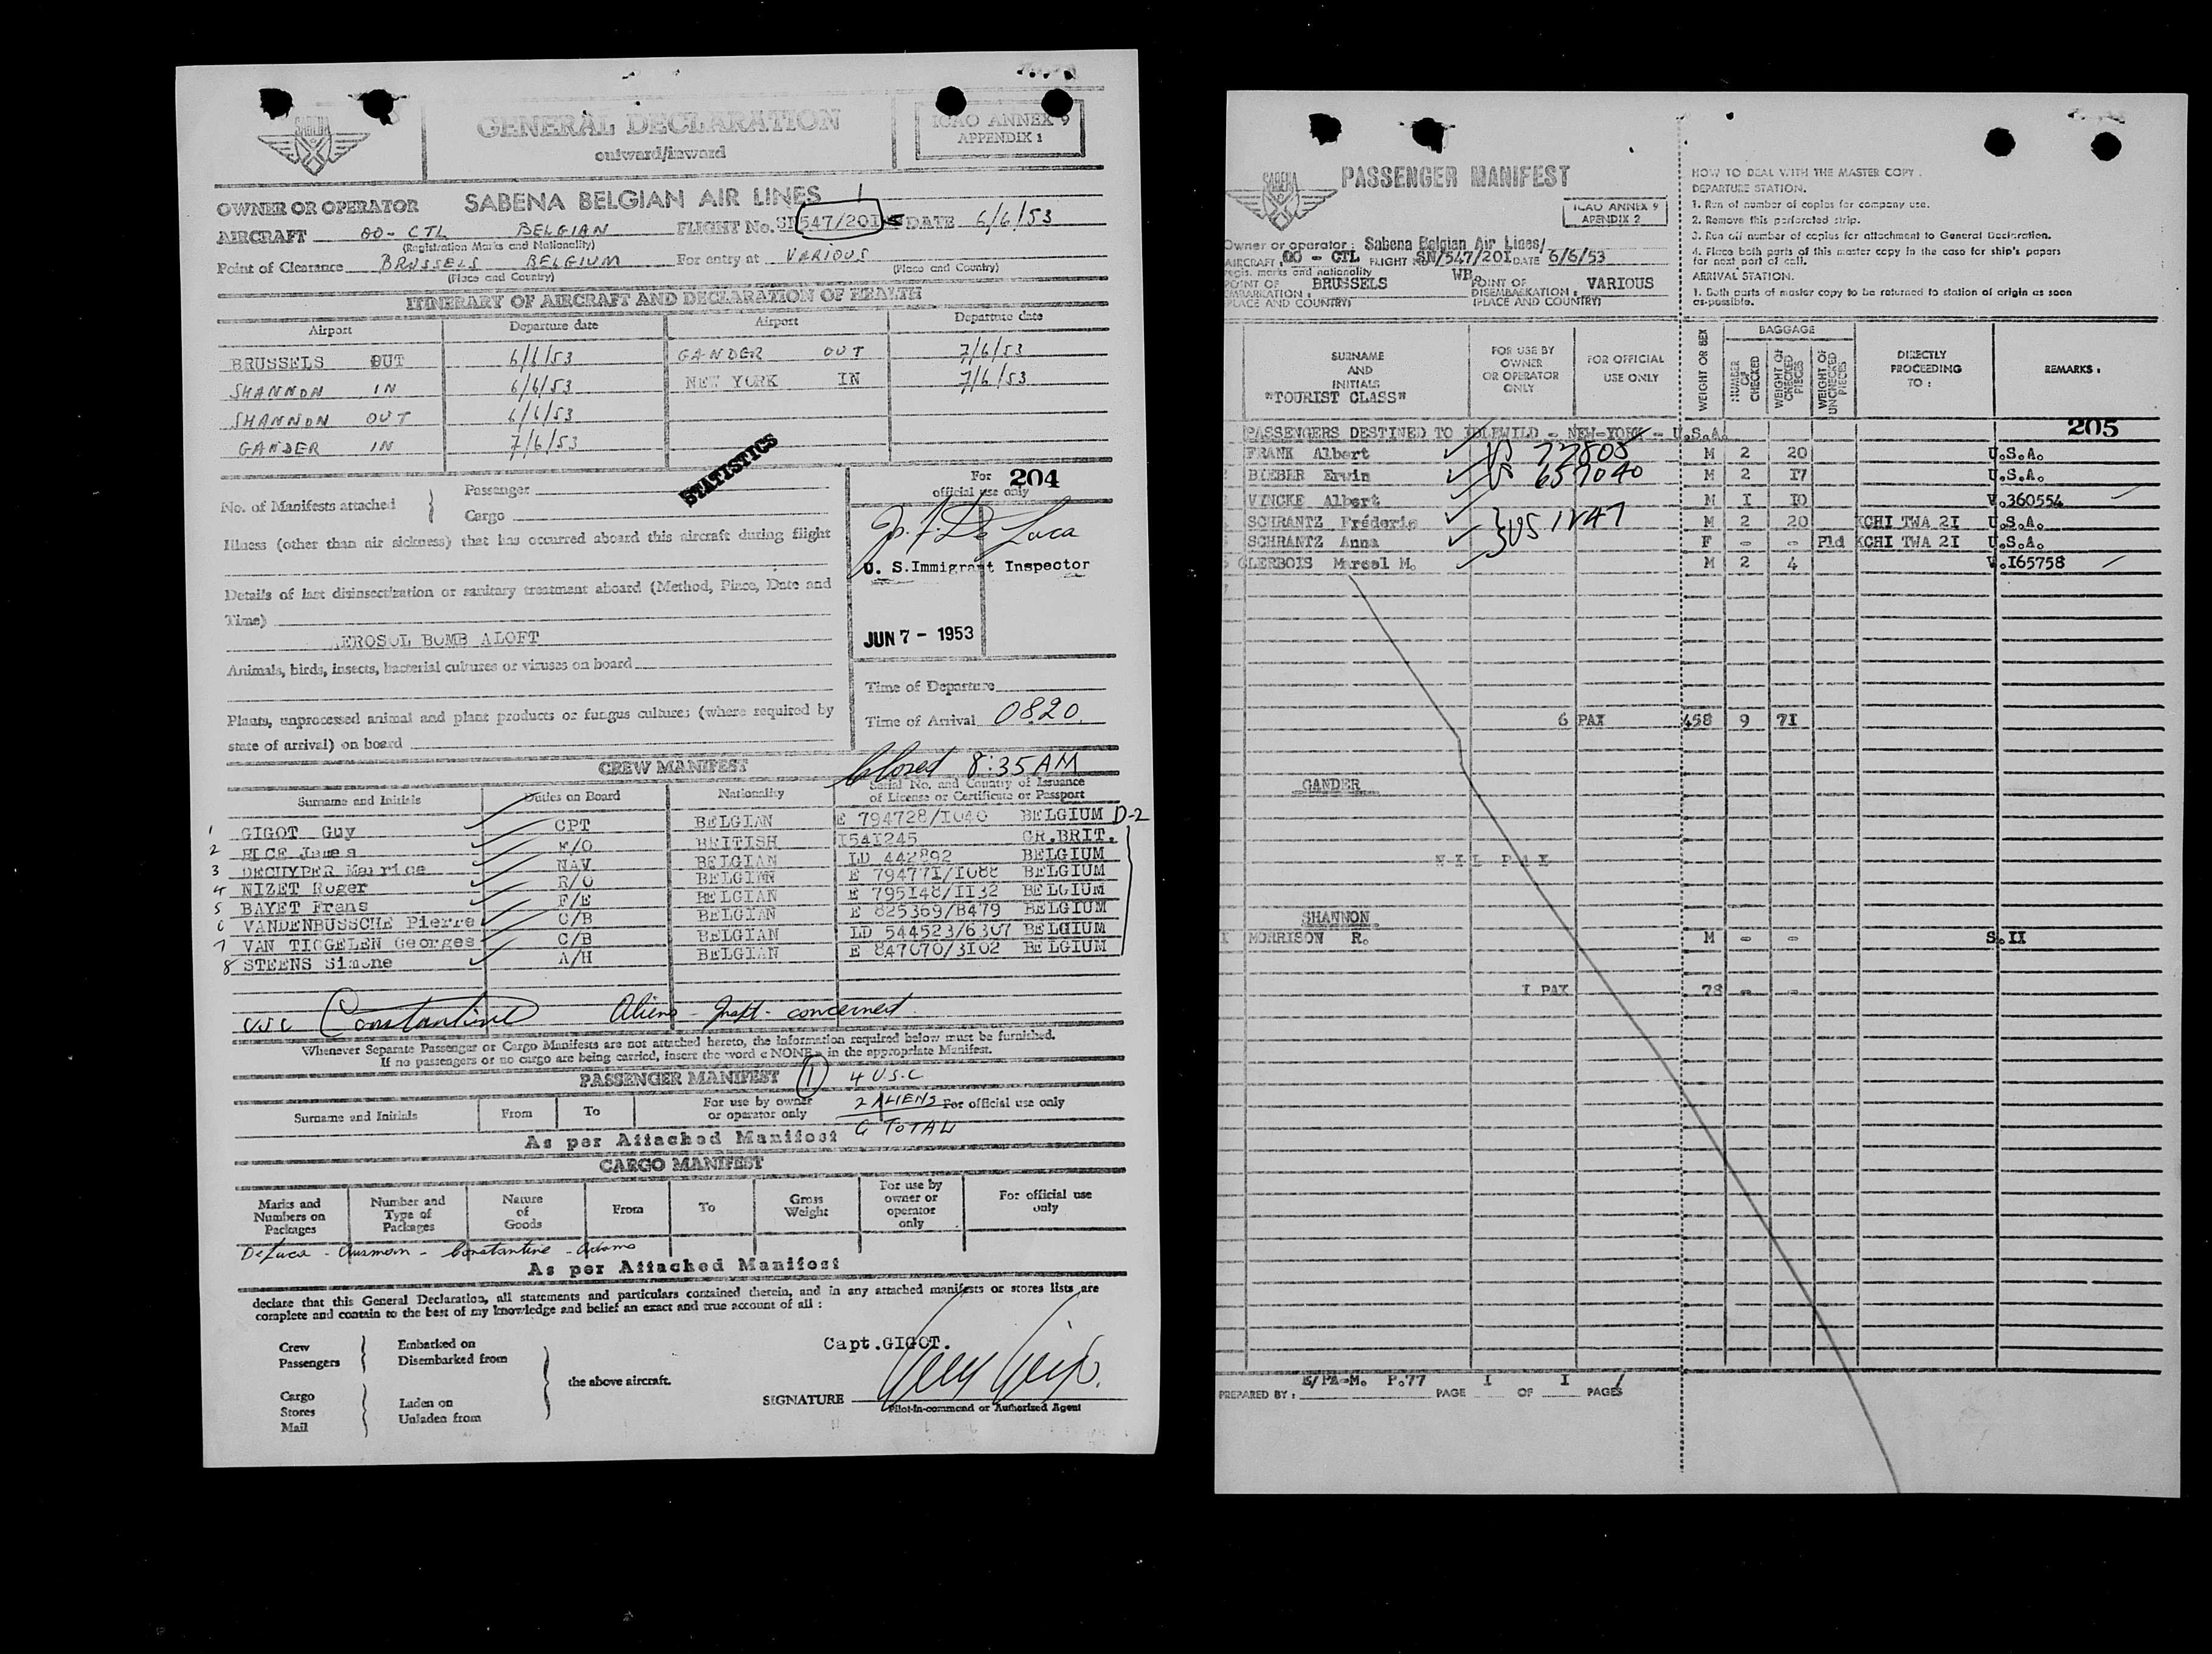 SABENA
GENERAL DECLARATION
outward/inward
ICAO ANNEX 9
APPENDIX 1
OWNER OR OPERATOR SABENA BELGIAN AIR LINES
AIRCRAFT OO-CTL BELGIAN FLIGHT No. 547/20I DATE 6/6/53
(Registration Marks and Nationality)
Point of Clearance BRUSSELS BELGIUM For entry at VARIOUS
(Place and Country) (Place and Country)
ITINERARY OF AIRCRAFT AND DECLARATION OF HEALTH
Airport Departure date Airport Departure date
BRUSSELS OUT 6/6/53 GANDER OUT 7/6/53
SHANNON IN 6/6/53 NEW YORK IN 7/6/53
SHANNON OUT 6/6/53
GANDER IN 7/6/53
STATISTICS
No. of Manifests attached } Passenger
Cargo
For 204
official use only
J. J. De Luca
U. S. Immigrant Inspector
JUN 7 - 1953
Illness (other than air sickness) that has occurred aboard this aircraft during flight
Details of last disinsectization or sanitary treatment aboard (Method, Place, Date and
Time)
AEROSOL BOMB ALOFT
Animals, birds, insects, bacterial cultures or viruses on board
Plants, unprocessed animal and plant products or fungus cultures (where required by
state of arrival) on board
Time of Departure
Time of Arrival 0820
Closed 8:35 AM
CREW MANIFEST
Surname and Initials Duties on Board Nationality Serial No. and Country of Issuance
of License or Certificate or Passport
1 GIGOT Guy CPT BELGIAN E 794728/I040 BELGIUM D-2
2 RICE James F/O BRITISH I54I245 GR.BRIT.
3 DECUYPER Maurice NAV BELGIAN LD 442892 BELGIUM
4 NIZET Roger R/O BELGIAN E 794771/I088 BELGIUM
5 BAYET Frans F/E BELGIAN E 795I48/II32 BELGIUM
6 VANDENBUSSCHE Pierre C/B BELGIAN E 825369/B479 BELGIUM
7 VAN TIGGELEN Georges C/B BELGIAN LD 544523/6307 BELGIUM
8 STEENS Simone A/H BELGIAN E 847070/3I02 BELGIUM
USC Constantine Aliens - Inspt. concerned
Whenever Separate Passenger or Cargo Manifests are not attached hereto, the information required below must be furnished.
If no passengers or no cargo are being carried, insert the word « NONE » in the appropriate Manifest.
PASSENGER MANIFEST 1 4 U.S.C.
Surname and Initials From To For use by owner
or operator only
2 ALIENS For official use only
6 TOTAL
As per Attached Manifest
CARGO MANIFEST
Marks and Numbers on Packages Number and Type of Packages Nature of Goods From To Gross Weight For use by owner or operator only For official use only
DeLuca - Ausman - Constantine - Adams
As per Attached Manifest
declare that this General Declaration, all statements and particulars contained therein, and in any attached manifests or stores lists are
complete and contain to the best of my knowledge and belief an exact and true account of all :
Crew
Passengers } Embarked on
Disembarked from
Cargo
Stores
Mail } Laden on
Unladen from
} the above aircraft.
Capt.GIGOT.
SIGNATURE
Pilot-in-command or Authorized Agent
SABENA
PASSENGER MANIFEST
ICAO ANNEX 9
APENDIX 2
Owner or operator : Sabena Belgian Air Lines/
AIRCRAFT : OO - CTL FLIGHT No SN/547/20I DATE 6/6/53
regis. marks and nationality WB.
POINT OF EMBARKATION : BRUSSELS POINT OF DISEMBARKATION : VARIOUS
(PLACE AND COUNTRY) (PLACE AND COUNTRY)
HOW TO DEAL WITH THE MASTER COPY .
DEPARTURE STATION.
1. Run of number of copies for company use.
2. Remove this perforated strip.
3. Run off number of copies for attachment to General Declaration.
4. Place both parts of this master copy in the case for ship's papers
for next port of call.
ARRIVAL STATION.
1. Both parts of master copy to be returned to station of origin as soon
as possible.
SURNAME AND INITIALS "TOURIST CLASS" FOR USE BY OWNER OR OPERATOR ONLY FOR OFFICIAL USE ONLY WEIGHT OR SEX BAGGAGE NUMBER OF CHECKED WEIGHT OF CHECKED PIECES WEIGHT OF UNCHECKED PIECES DIRECTLY PROCEEDING TO : REMARKS :
205
PASSENGERS DESTINED TO IDLEWILD - NEW-YORK - U.S.A.
FRANK Albert US 77805 M 2 20 U.S.A.
BIEBER Erwin US 657040 M 2 I7 U.S.A.
VINCKE Albert M I I0 V.360554
SCHRANTZ Fréderic M 2 20 KCHI TWA 2I U.S.A.
SCHRANTZ Anna F - - Pld KCHI TWA 2I U.S.A.
CLERBOIS Marcel M. M 2 4 V.I65758
6 PAX 458 9 7I
GANDER
NIL PAX
SHANNON
I MORRISON R. M - - S.II
I PAX 78 - -
PREPARED BY : E/PA-M. P.77 PAGE I OF I PAGES